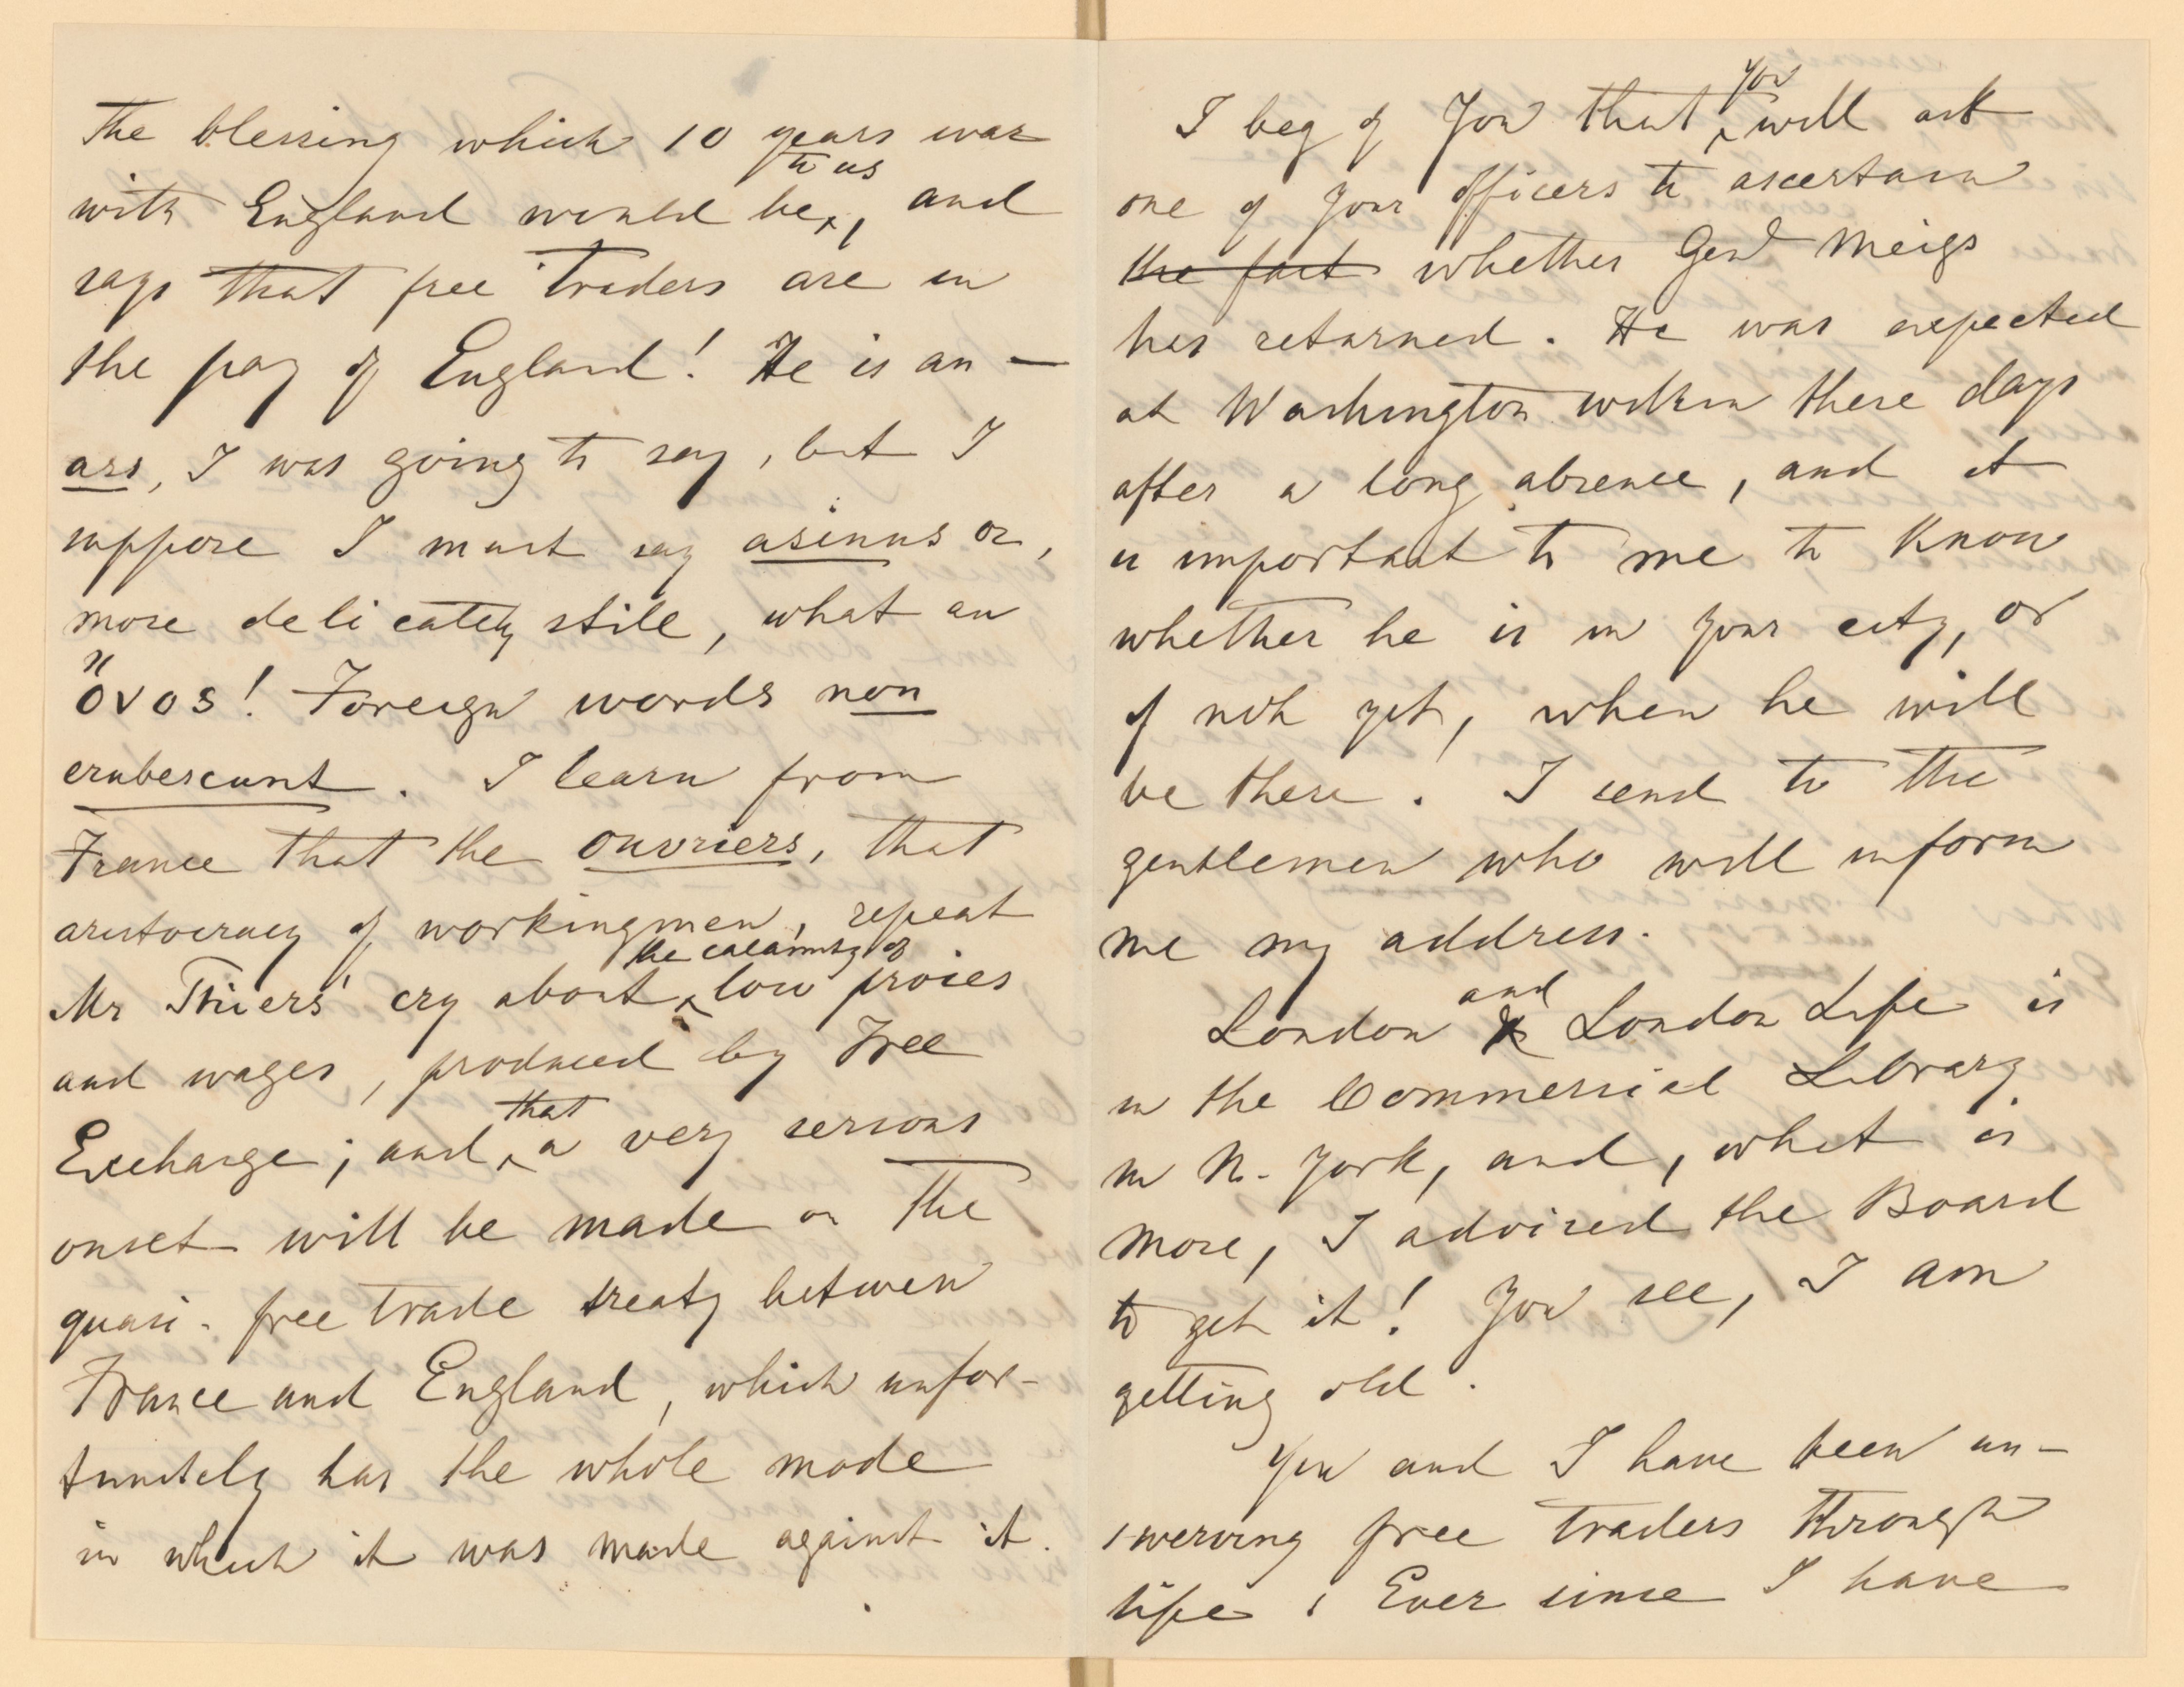 The blessing which 10 years war
with England would be to us, and
says that free traders are in
the pay of England! He is an —
ass, I was going to say, but I
suppose I must say asinus or,
more delicately still, what an
ὄνος! Foreign words non
erubescunt. I learn from
France that the ouvriers, that
aristocracy of workingmen, repeat
Mr Thiers' cry about the calamity of low prices
and wages, produced by Free
Exchange; and that a very serious
onset will be made on the
quasi-free trade treaty between
France and England, which unfor-
tunately has the whole mode
in which it was made against it.
I beg of You that you will ask
one of Your officers to ascertain
the fact whether Genl Meigs
has returned. He was expected
at Washington within these days
after a long absence, and it
is important to me to know
whether he is in Your city, or
if not yet, when he will
be there. I send to the
gentlemen who will inform
me my address.
London and London Life is
in the Commercial Library
in N. York, and, what is
more, I advised the Board
to get it! You see, I am
getting old.
You and I have been un-
swerving free traders through
life; Ever since I have